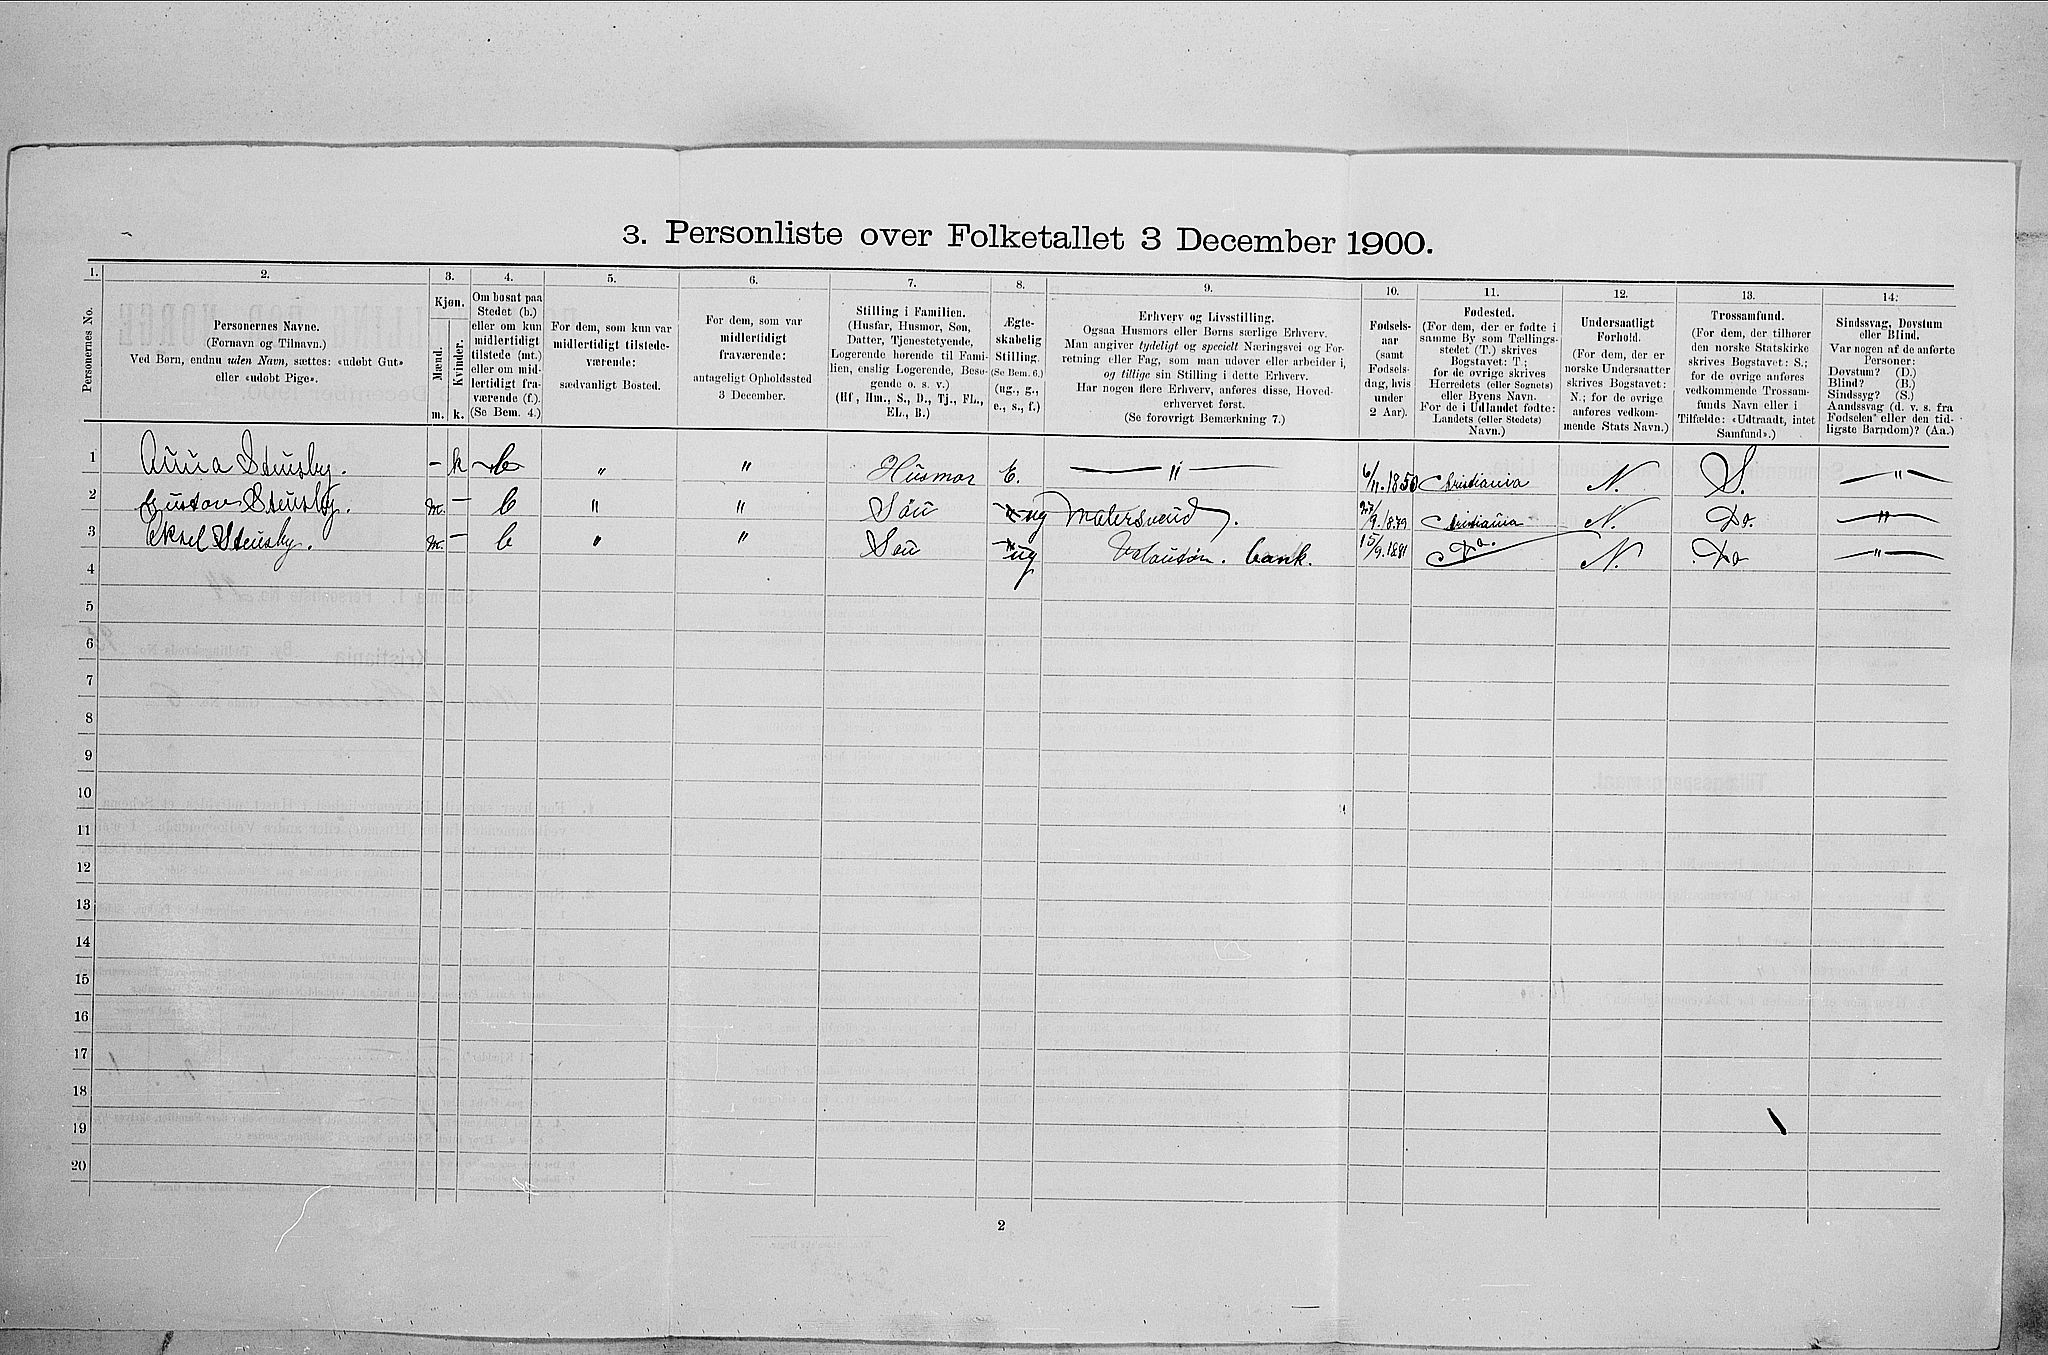 3. Personliste over Folketallet 3 December 1900.
1. 2. 3. 4. 5. 6. 7. 8. 9. 10. 11. 12. 13. 14.
Personernes No.
Personernes Navne.
(Fornavn og Tilnavn.)
Ved Børn, endnu uden Navn, sættes: «udøbt Gut»
eller «udøbt Pige».
Kjøn.
Mænd.
Kvinder.
m. k.
Om bosat paa
Stedet (b.)
eller om kun
midlertidigt
tilstede (mt.)
eller om mid-
lertidigt fra-
værende (f.).
(Se Bem. 4.)
For dem, som kun var
midlertidigt tilstede-
værende:
sædvanligt Bosted.
For dem, som var
midlertidigt
fraværende:
antageligt Opholdssted
3 December.
Stilling i Familien.
(Husfar, Husmor, Søn,
Datter, Tjenestetyende,
Logerende hørende til Fami-
lien, enslig Logerende, Besø-
gende o. s. v.)
(Hf, Hm., S., D., Tj., FL.,
EL., B.)
Ægte-
skabelig
Stilling.
(Se Bem. 6.)
(ug., g.,
e., s., f.)
Erhverv og Livsstilling.
Ogsaa Husmors eller Børns særlige Erhverv.
Man angiver tydeligt og specielt Næringsvei og For-
retning eller Fag, som man udøver eller arbeider i,
og tillige sin Stilling i dette Erhverv.
Har nogen flere Erhverv, anføres disse, Hoved-
erhvervet først.
(Se forøvrigt Bemærkning 7.)
Fødsels-
aar
(samt
Fødsels-
dag, hvis
under
2 Aar).
Fødested.
(For dem, der er fødte i
samme By som Tællings-
stedet (T.) skrives
Bogstavet: T;
for de øvrige skrives
Herredets (eller Sognets)
eller Byens Navn.
For de i Udlandet fødte:
Landets (eller Stedets)
Navn.)
Undersaatligt
Forhold.
(For dem, der er
norske Undersaatter
skrives Bogstavet:
N.; for de øvrige
anføres vedkom-
mende Stats Navn.)
Trossamfund.
(For dem, der tilhører
den norske Statskirke
skrives Bogstavet: S.;
for de øvrige anføres
vedkommende Trossam-
funds Navn eller i
Tilfælde: «Udtraadt, intet
Samfund».)
Sindssvag, Døvstum
eller Blind.
Var nogen af de anførte
Personer:
Døvstum? (D.)
Blind? (B.)
Sindssyg? (S.)
Aandssvag (d. v. s. fra
Fødselen eller den tid-
ligste Barndom)? (Aa.)
1 Anna Stensby. - k b " " Husmor E. — " — 6/11. 1850 Christiania N. S. — " —
2 Gustav Stensby. m. - b " " Søn ug Malersvend. 27/9. 1879 Christiania N. Do. — " —
3 Eksel Stensby. m. - b " " Søn ug bank. 15/9. 1881 Do. N. Do — " —
4
5
6
7
8
9
10
11
12
13
14
15
16
17
18
19
20
2